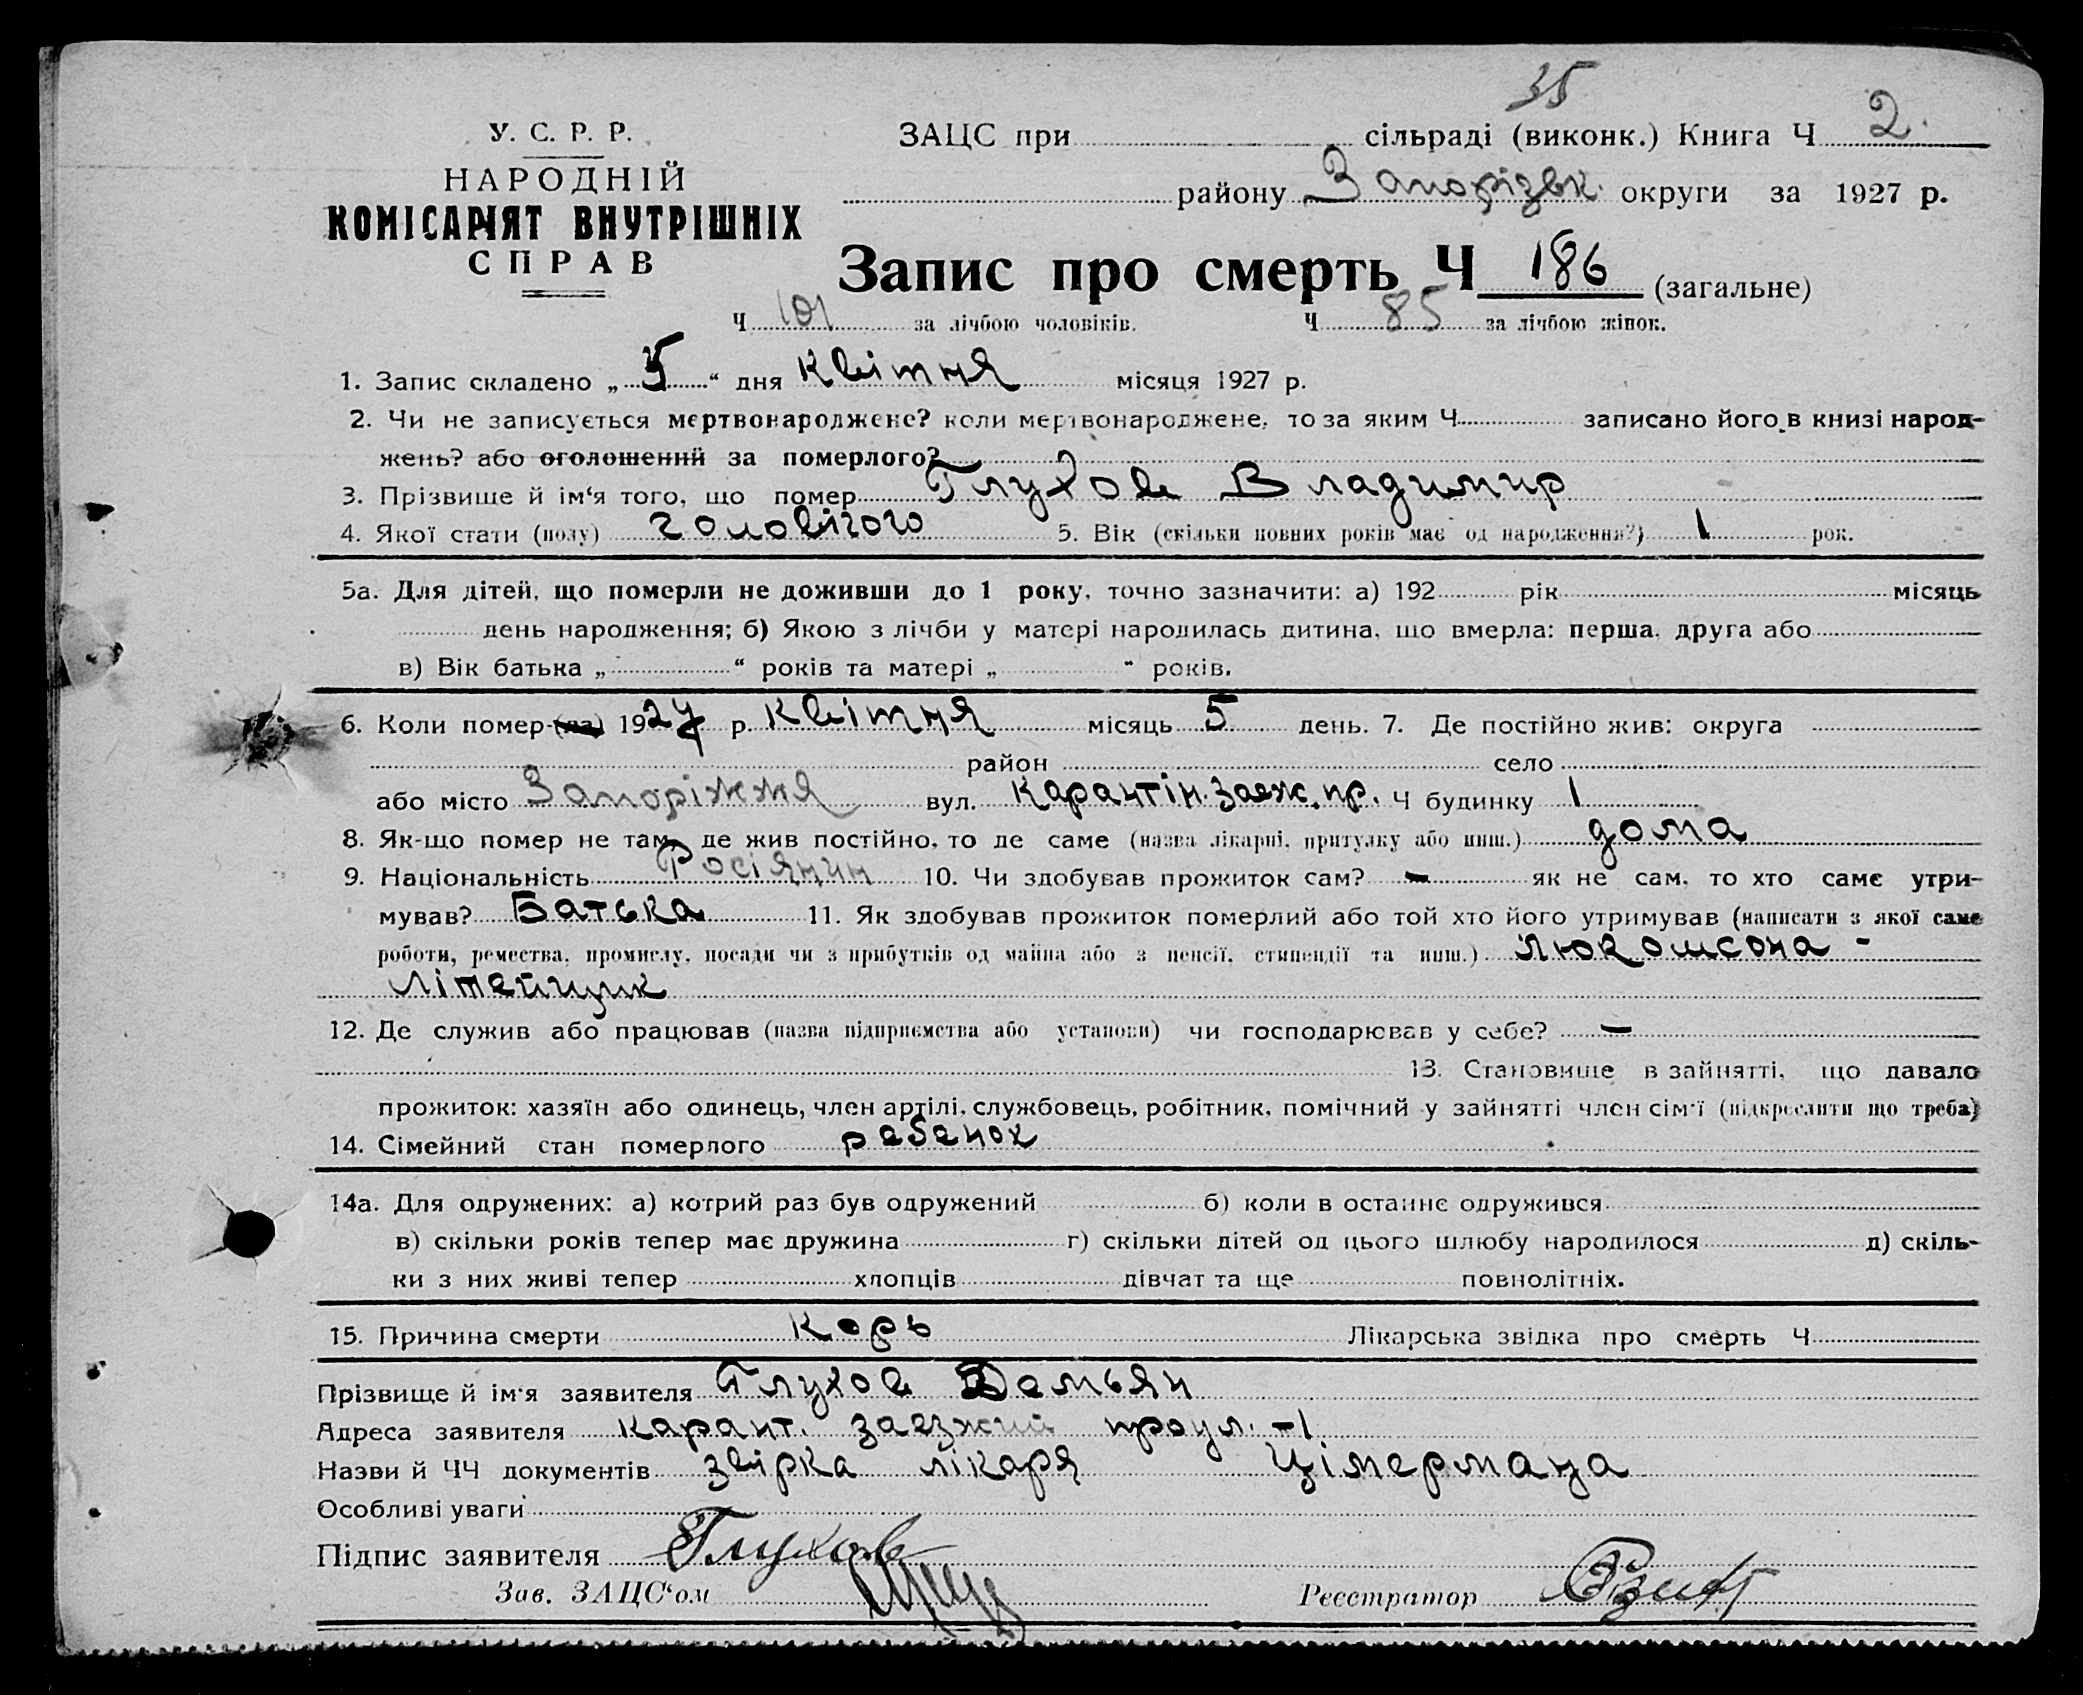 35
У. С. Р. Р.
НАРОДНІЙ
КОМІСАРІЯТ ВНУТРІШНІХ
СПРАВ
ЗАЦС при сільраді (виконк.) Книга Ч 2.
району Запорізьк. округи за 1927 р.
Запис про смерть Ч 186 (загальне)
Ч 101 за лічбою чоловіків. Ч 85 за лічбою жінок.
1. Запис складено „ 5 “ дня Квітня місяця 1927 р.
2. Чи не записується мертвонароджене? коли мертвонароджене, то за яким Ч записано його в книзі народ-
жень? або оголошений за померлого?
3. Прізвище й ім‘я того, що помер Глухов Владимир
4. Якої стати (полу) чоловічого 5. Вік (скільки повних років має од народження?) 1 рок.
5а. Для дітей, що померли не доживши до 1 року, точно зазначити: а) 192 рік місяць
день народження; б) Якою з лічби у матері народилась дитина, що вмерла: перша, друга або
в) Вік батька „ “ років та матері „ “ років.
6. Коли помер-(ла) 1927 р. Квітня місяць 5 день. 7. Де постійно жив: округа
район село
або місто Запоріжжя вул. Карантін. заеж. пр. Ч будинку 1
8. Як-що помер не там, де жив постійно, то де саме (назва лікарні, притулку або инш.) дома
9. Національність Росіянин 10. Чи здобував прожиток сам? – як не сам, то хто саме утри-
мував? Батька 11. Як здобував прожиток померлий або той хто його утримував (написати з якої саме
роботи, ремества, промислу, посади чи з прибутків од майна або з пенсії, стипендії та инш.)
Літейщик
12. Де служив або працював (назва підприємства або установи) чи господарював у себе? –
13. Становище в зайнятті, що давало
прожиток: хазяїн або одинець, член артілі, службовець, робітник, помічний у зайнятті член сім'ї (підкреслити що треба)
14. Сімейний стан померлого ребенок
14а. Для одружених: а) котрий раз був одружений б) коли в останнє одружився
в) скільки років тепер має дружина г) скільки дітей од цього шлюбу народилося д) скіль-
ки з них живі тепер хлопців дівчат та ще повнолітніх.
15. Причина смерти Корь Лікарська звідка про смерть Ч
Прізвище й ім'я заявителя Глухов Демьян
Адреса заявителя карант. заезжий проул. -1
Назви й ЧЧ документів звірка лікаря Цімермана
Особливі уваги
Підпис заявителя Глухов
Зав. ЗАЦС‘ом Реєстратор